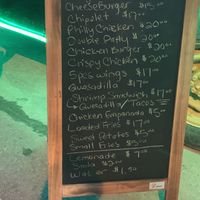 Cheeseburger $15.00
Chipolet $17.00
Philly Chicken $20.00
Double Patty $20.00
Chicken Burger $20.00
Crispy Chicken $20.00
5pcs wings $17.00
Quesadilla $17.00
Shrimp Sandwich $17.00
Quesadilla / Tacos
Chicken Empanada $5.00
Loaded Fries $17.00
Sweet Potatoes $5.00
Small Fries $5.00
Lemonade $7.00
Soda $2.00
Water $1.50